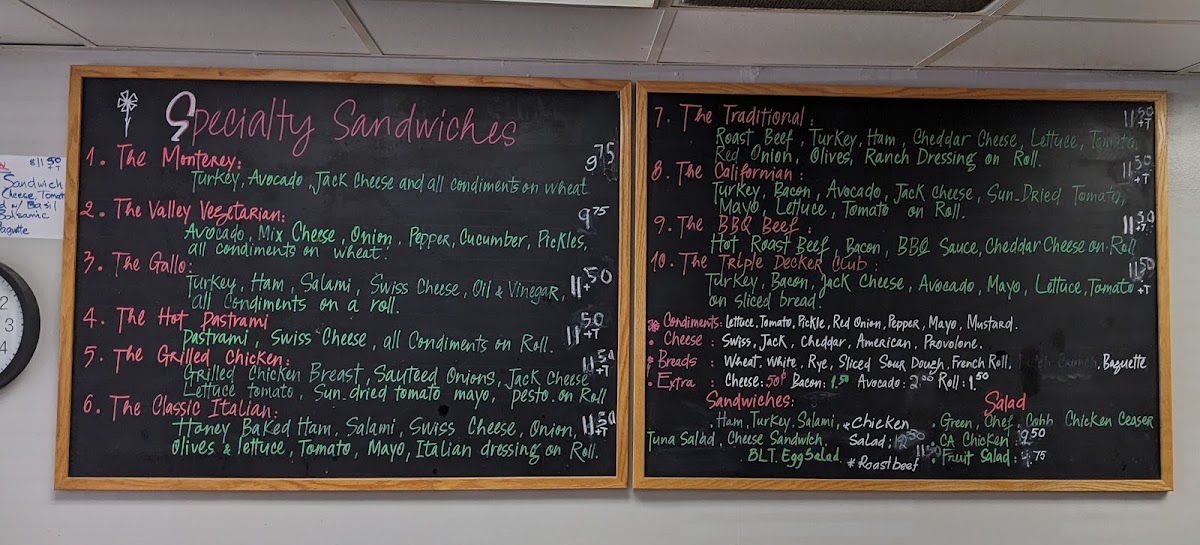 $11.50
+T
Sandwich
Cheese, Tomato
w/ Basil
Balsamic
Baguette
2
3
4
Specialty Sandwiches
1. The Monterey: 9.75
Turkey, Avocado, Jack Cheese and all condiments on wheat
2. The Valley Vegetarian: 9.75
Avocado, Mix Cheese, Onion, Pepper, Cucumber, Pickles,
all condiments on wheat.
3. The Gallo: 11.50
Turkey, Ham, Salami, Swiss Cheese, Oil & Vinegar, +T
all condiments on a roll.
4. The Hot Pastrami 11.50
Pastrami, Swiss Cheese, all Condiments on Roll. +T
5. The Grilled Chicken: 11.50
Grilled Chicken Breast, Sauteed Onions, Jack Cheese +T
Lettuce tomato, Sun-dried tomato mayo, pesto on Roll
6. The Classic Italian: 11.50
Honey Baked Ham, Salami, Swiss Cheese, Onion, +T
Olives & lettuce, Tomato, Mayo, Italian dressing on Roll.
7. The Traditional: 11.50
+T
Roast Beef, Turkey, Ham, Cheddar Cheese, Lettuce, Tomato,
Red Onion, Olives, Ranch Dressing on Roll.
8. The Californian: 11.50
+T
Turkey, Bacon, Avocado, Jack cheese, Sun-Dried Tomato,
Mayo, Lettuce, Tomato on Roll.
9. The BBQ Beef: 11.50
+T
Hot Roast Beef, Bacon, BBQ Sauce, Cheddar Cheese on Roll
10. The Triple Decker Club: 11.50
Turkey, Bacon, Jack Cheese, Avocado, Mayo, Lettuce, Tomato +T
on sliced bread
Condiments: Lettuce, Tomato, Pickle, Red Onion, Pepper, Mayo, Mustard.
Cheese: Swiss, Jack, Cheddar, American, Provolone.
Breads: Wheat, White, Rye, Sliced Sour Dough, French Roll, Baguette
Extra: Cheese: 50¢ Bacon: 1.50 Avocado: 2.00 Roll: 1.50
Sandwiches:
Ham, Turkey, Salami,
Tuna Salad, Cheese Sandwich,
BLT. Egg Salad.
*Chicken
Salad:
11.50
*Roast beef
Salad
Green, Chef, Cobb Chicken Ceaser
CA Chicken: 9.50
Fruit Salad: 4.75